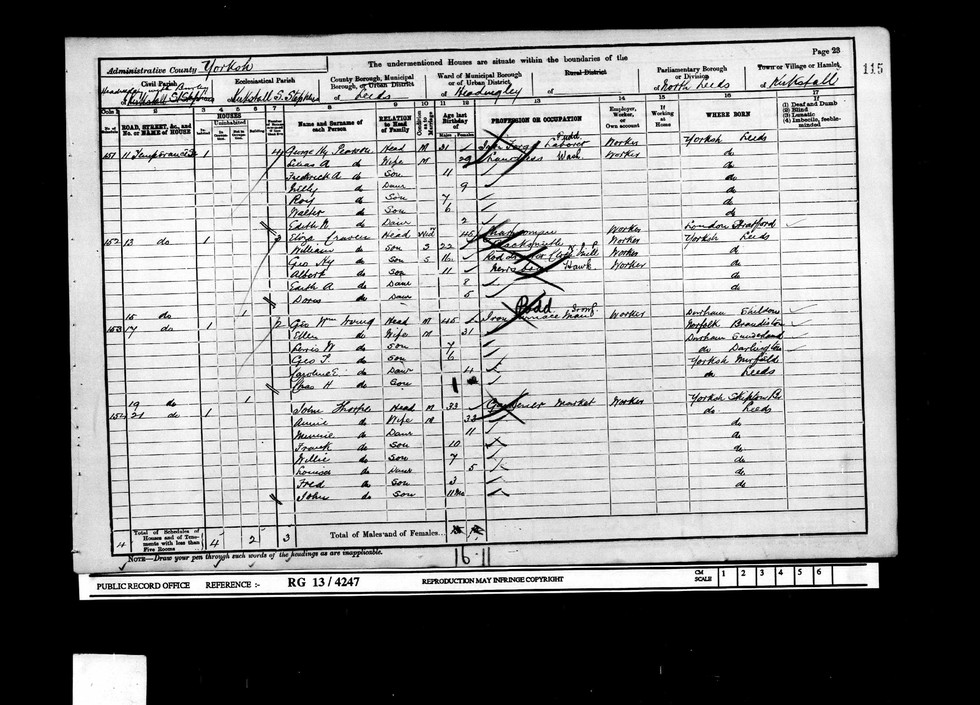 Page 23
The undermentioned Houses are situate within the boundaries of the
115
Administrative County Yorksh
Civil Parish
Ecclesiastical Parish
County Borough, Municipal Borough, or Urban District
Ward of Municipal Borough or of Urban District
Rural District
Parliamentary Borough or Division
Town or Village or Hamlet
of Kirkstall St Stephens
Kirkstall St Stephen
of Leeds
of Headingley
of
of North Leeds
of Kirkstall
Cols. 1 2 3 4 5 6 7 8 9 10 11 12 13 14 15 16 17
ROAD, STREET, &c., and No. or NAME of HOUSE
HOUSES
Uninhabited
Building
Name and Surname of each Person
RELATION to Head of Family
Condition as to Marriage
Age last Birthday of
Males Females
PROFESSION OR OCCUPATION
Employer, Worker, or Own account
If Working at Home
WHERE BORN
(1) Deaf and Dumb
(2) Blind
(3) Lunatic
(4) Imbecile, feeble-minded
151 11 1 4 George Hy Head M 31 Labourer Pudd Worker Yorksh Leeds
Lilias A do Wife M 29 Wash Worker do
Frederick A do Son 11 do
Lilly do Daur 9 do
Roy do Son 7 do
Walter do Son 6 do
Edith M do Daur 2 do
152 13 do 1 Eliza Craven Head Wid 45 Charwoman Worker London Stratford
William do Son S 22 Blacksmith Worker Yorksh Leeds
Geo Hy do Son S 16 Mill Worker do
Albert do Son 11 News Hawk Worker do
Edith A do Daur 8 do
Doris do Daur 5 do
15 do 1
153 17 do 1 2 Geo Wm Irving Head M 45 Iron Furnace Man Pudd Worker Durham Shildon
Ellen do Wife M 31 Norfolk Brandiston
W do Son 7 Durham Sunderland
Geo T. do Son 6 do Darlington
Caroline E. do Daur 4 Yorksh Mirfield
Chas H do Son 1 do Leeds
19 do 1
154 21 do 1 John Head M 33 Gardener Market Worker Yorksh Skipton
Annie do Wife M 33 do Leeds
Minnie do Daur 11 do
Frank do Son 10 do
Willie do Son 7 do
Louisa do Daur 5 do
Fred do Son 3 do
John do Son 11 Mo do
4 Total of Schedules of Houses and of Tenements with less than Five Rooms 4 2 3 Total of Males and of Females...
16 11
NOTE—Draw your pen through such words of the headings as are inapplicable.
PUBLIC RECORD OFFICE REFERENCE :- RG 13 / 4247 REPRODUCTION MAY INFRINGE COPYRIGHT CM SCALE 1 2 3 4 5 6